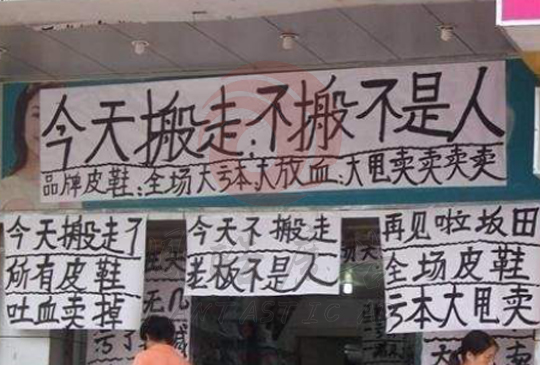 今天搬走:不搬不是人
品牌皮鞋:全场大亏本:大放血:大甩卖卖卖卖
今天搬走了
所有皮鞋
吐血卖掉
今天不搬走
老板不是人
再见啦坂田
全场皮鞋
亏本大甩卖